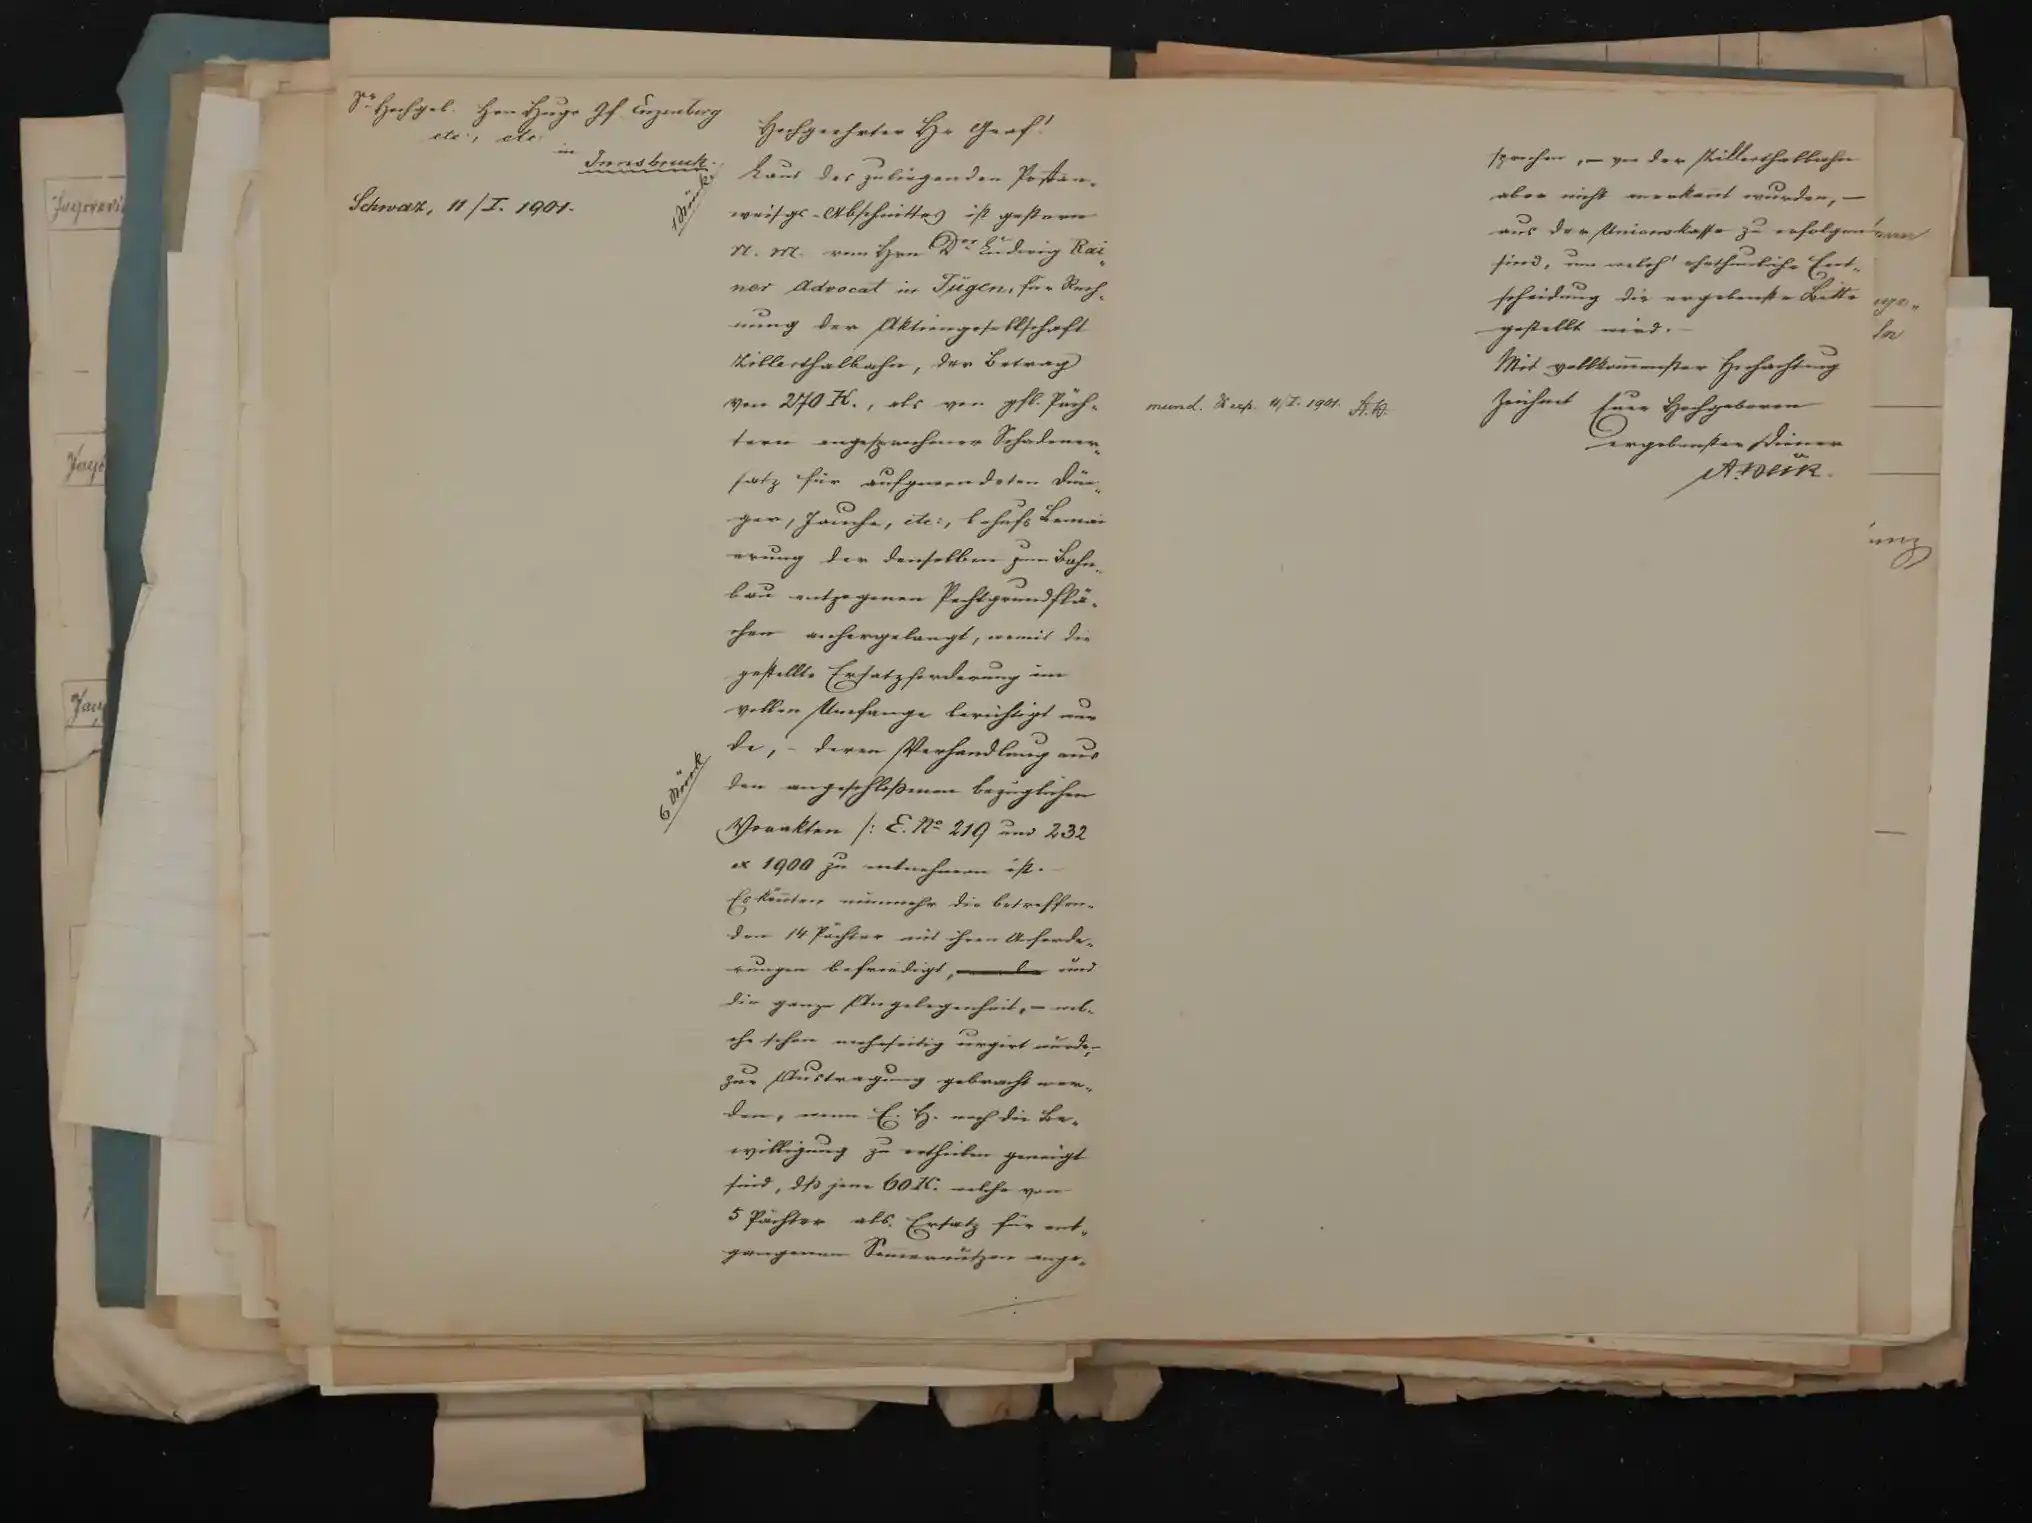 Sr Hochgeb. Hrn Hugo Gf. Enzenberg
etc:, etc:
in
Innsbruck.
Schwaz, 11/I. 1901.
Hochgeehrter Hr Graf!
Laut des zuliegenden Postan-
weisgs-Abschnittes ist gestern
N. M. vom Hrn Dor Ludwig Rai-
ner Advocat in Fügen, für Rech-
nung der Aktiengesellschaft
Zillerthalbahn, der Betrag
von 270 K., als von gfl. Päch-
tern angesprochener Schadener-
satz für aufgewendeten Dün-
ger, Jauche, etc:, behufs
der denselben zum Bahn-
bau entzogenen Pachtgrundflä-
chen anhergelangt, womit die
gestellte Ersatzforderung im
vollen Umfange berichtigt wur
de, – deren Verhandlung aus
den angeschloßenen bezüglichen
Vorakten /: E. No 219 und 232
ex 1900 zu entnehmen ist.
Es könnten nunmehr die betreffen-
den 14 Pächter mit ihren Anforde-
rungen befriedigt, und
die ganze Angelegenheit, – wel-
che schon mehrseitig urgirt wurde,
zur Austragung gebracht wer-
den, wenn E. H. noch die Be-
willigung zu ertheilen geneigt
sind, dß jene 60 K. welche von
5 Pächter als Ersatz für ent-
gangenen ange-
1 Stück
6 Stück
mund. & exp. 11/I. 1901.
sprochen, – von der Zillerthalbahn
aber nicht anerkannt wurden, –
aus der Unionskasse zu erfolgen
sind, um welch' Ent-
scheidung die ergebenste Bitte
gestellt wird. –
Mit vollkommenster Hochachtung
zeichnet Euer Hochgeboren
ergebenster Diener